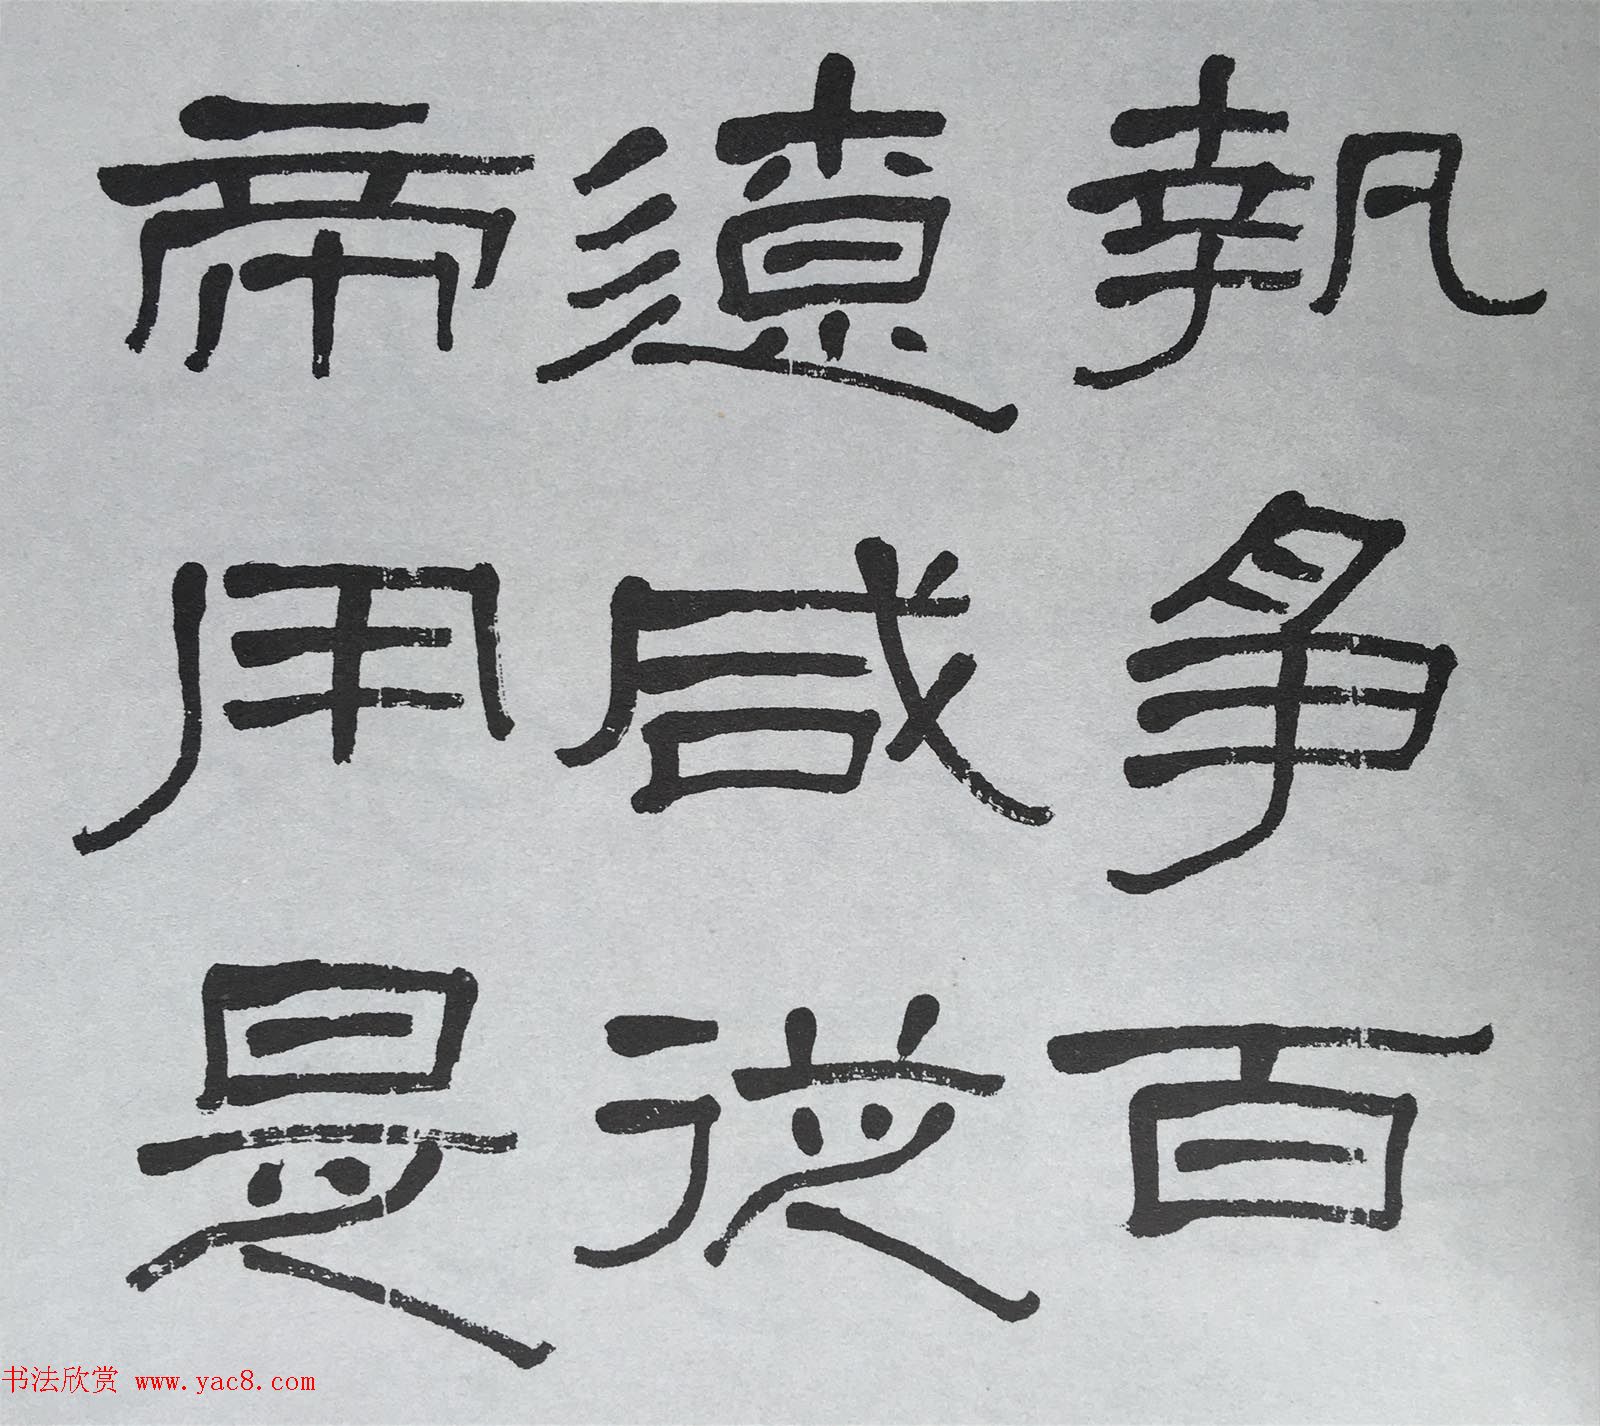 執爭百
遼咸從
帝用是
书法欣赏 www.yac8.com